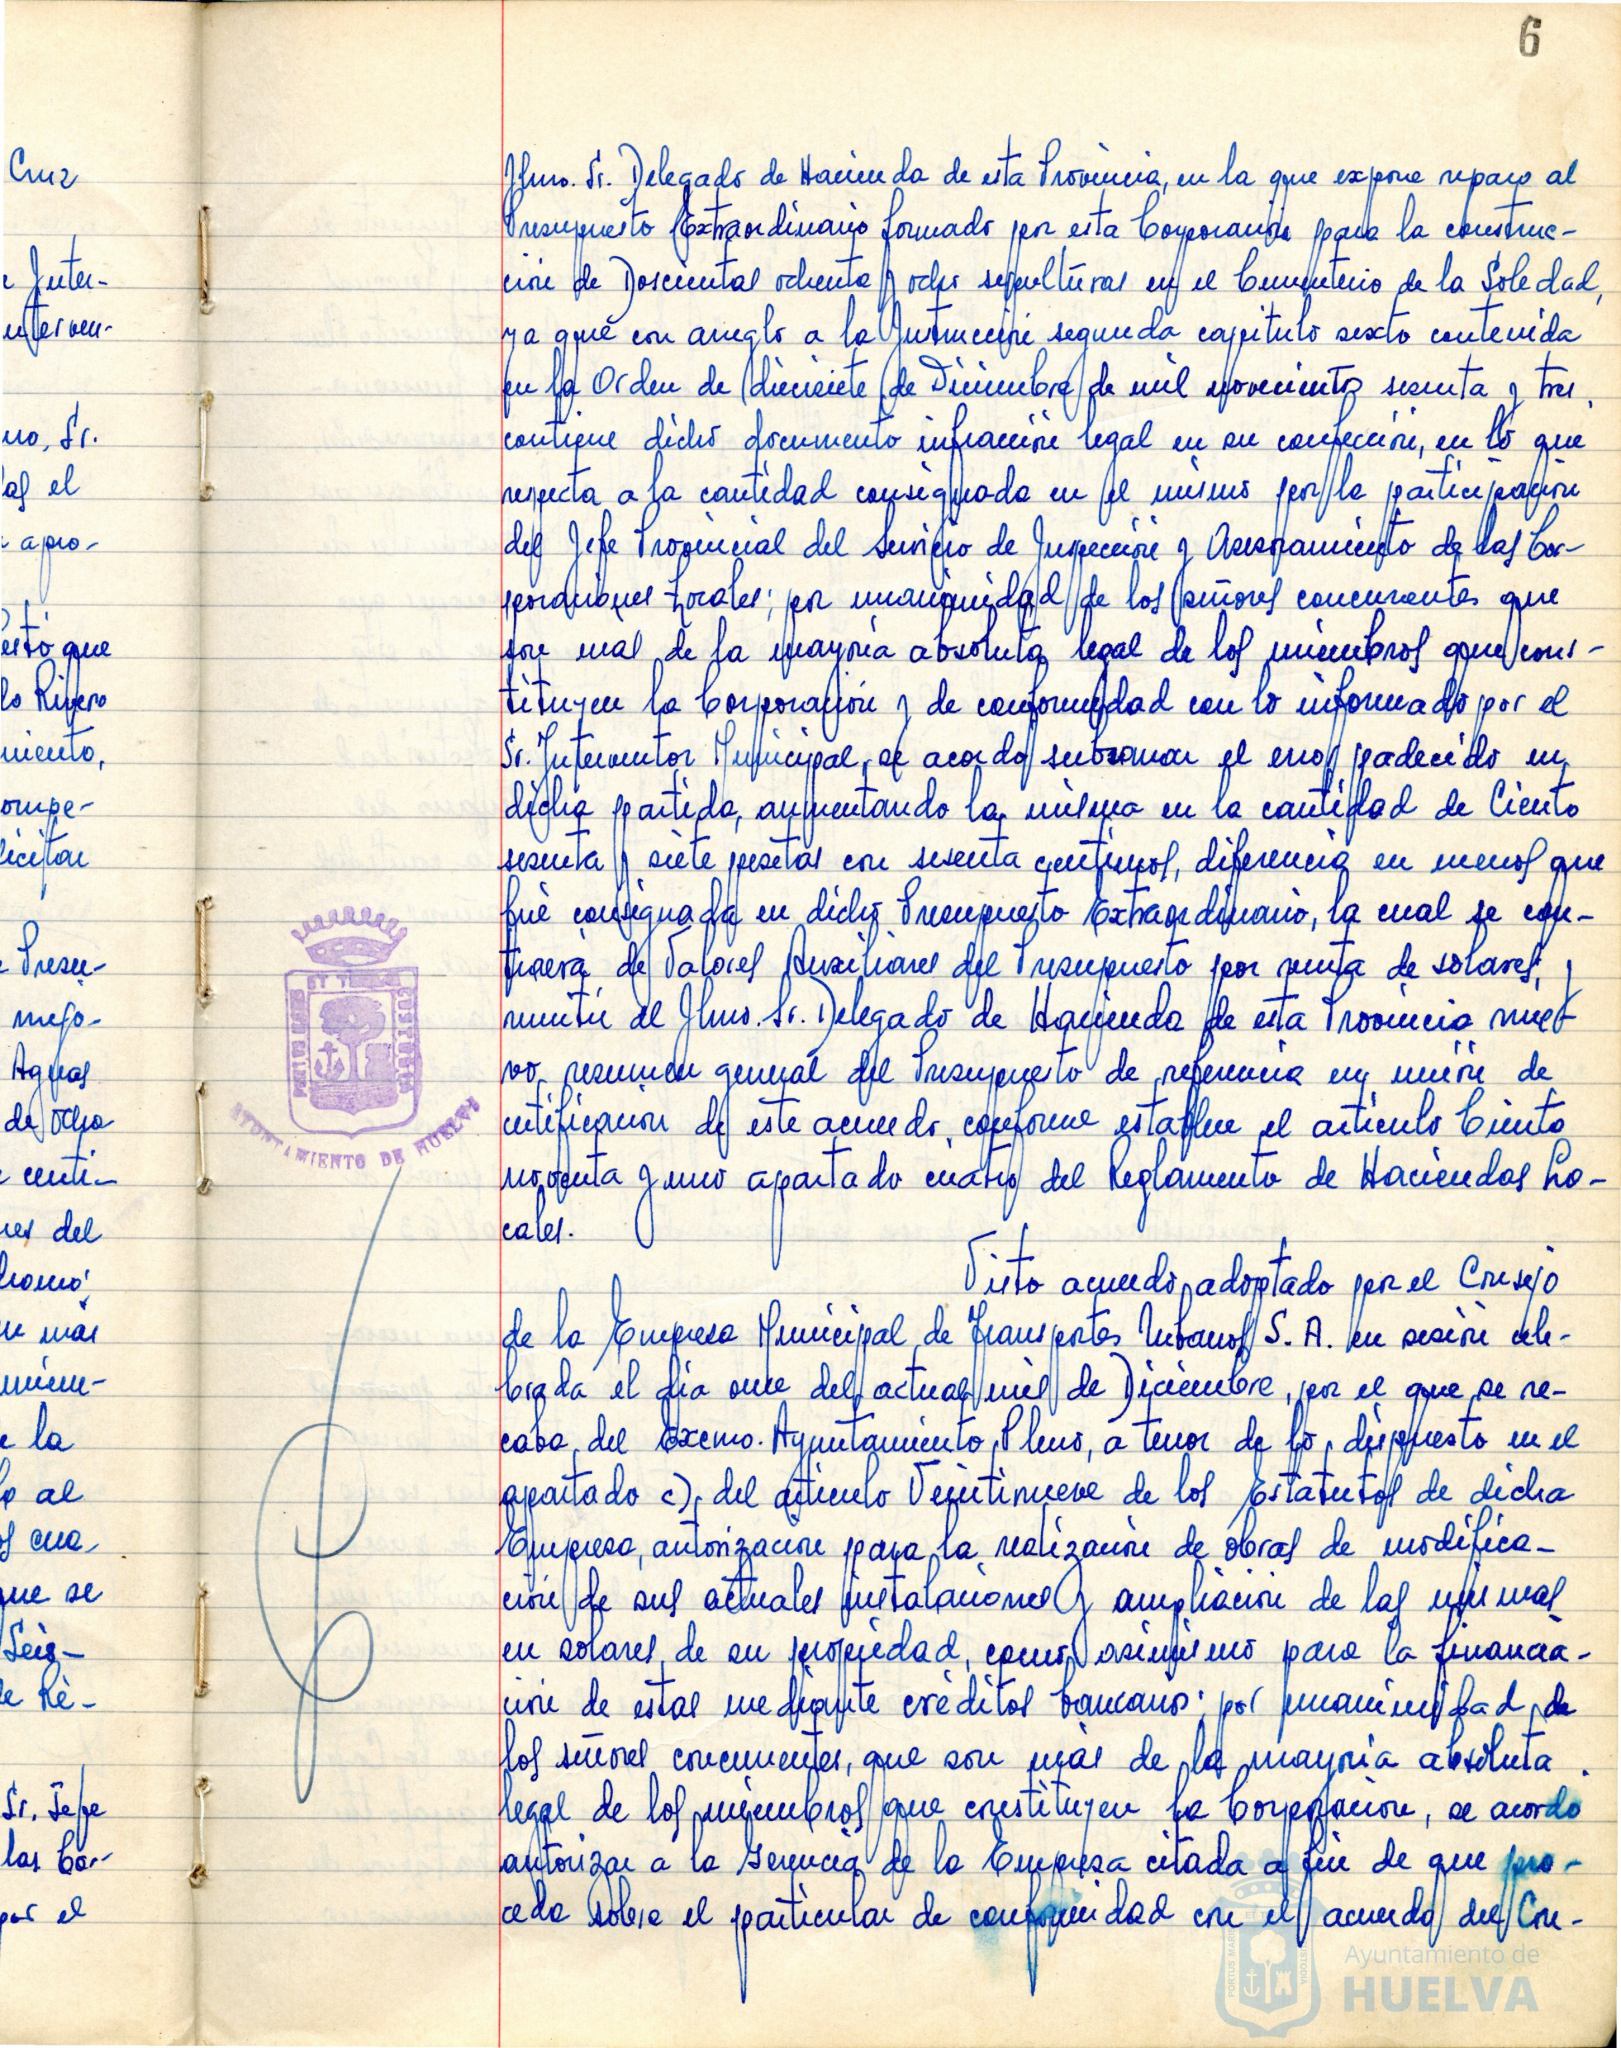 6
Cruz
Inter-
interven-
mo, Sr.
el
apro-
esto que
lo Rivero
miento,
ompe-
licitar
Presu-
mejo-
Aguas
de ocho
centi-
res del
más
miem-
la
al
cua-
que se
Seis-
de Ré-
Sr. Jefe
las Cor-
por el
Ilmo. Sr. Delegado de Hacienda de esta Provincia, en la que expone reparo al
Presupuesto Extraordinario formado por esta Corporación para la construc-
ción de Doscientas ochenta y ocho sepulturas en el Cementerio de la Soledad,
ya que con arreglo a la Instrucción segunda capitulo sexto contenida
en la Orden de diecisiete de Diciembre de mil novecientos sesenta y tres,
contiene dicho documento infracción legal en su confección, en lo que
respecta a la cantidad consignada en el mismo por la participación
del Jefe Provincial del Servicio de Inspección y Asesoramiento de las Cor-
poraciones Locales; por unanimidad de los señores concurrentes que
son mas de la mayoria absoluta legal de los miembros que cons-
tituyen la Corporación y de conformidad con lo informado por el
Sr. Interventor Municipal, se acordó subsanar el error padecido en
dicha partida, aumentando la misma en la cantidad de Ciento
sesenta y siete pesetas con sesenta centimos, diferencia en menos que
fué consignada en dicho Presupuesto Extraordinario, la cual se con-
traerá de Valores Auxiliares del Presupuesto por venta de solares; y
remitir al Ilmo. Sr. Delegado de Hacienda de esta Provincia nuev
vo resumen general del Presupuesto de referencia en unión de
certificación de este acuerdo, conforme establece el articulo Ciento
noventa y uno apartado cuatro del Reglamento de Haciendas Lo-
cales.
Visto acuerdo adoptado por el Consejo
de la Empresa Municipal de Transportes Urbanos S. A. en sesión cele-
brada el dia once del actual mes de Diciembre, por el que se re-
caba del Excmo. Ayuntamiento Pleno, a tenor de lo dispuesto en el
apartado c), del articulo Veintinueve de los Estatutos de dicha
Empresa, autorización para la realización de obras de modifica-
ción de sus actuales instalaciones y ampliación de las mismas
en solares de su propiedad, como asimismo para la financia-
ción de estas mediante créditos bancarios; por unanimidad de
los señores concurrentes, que son más de la mayoria absoluta
legal de los miembros que constituyen la Corporación, se acordó
autorizar a la Gerencia de la Empresa citada a fin de que pro-
ceda sobre el particular de conformidad con el acuerdo del Con-
PORTUS MARIS ET TERRAE CUSTODIA
AYUNTAMIENTO DE HUELVA
Ayuntamiento de
HUELVA